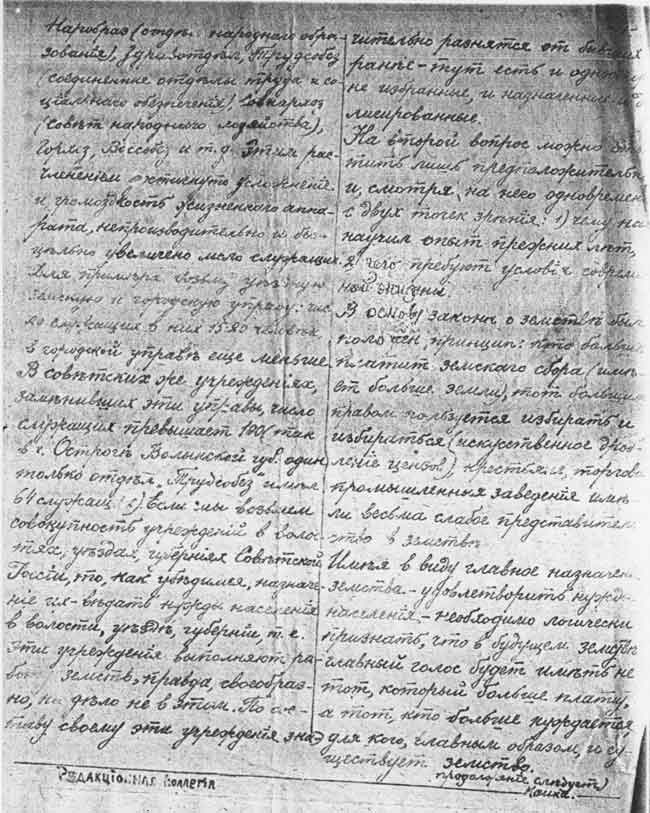 Наробраз (отдѣл народнаго обра-
зованія), Здравотдѣл, Трудсобез
(соединенные отдѣлы труда и со-
ціальнаго обезпеченія), Совнархоз
(Совѣт народнаго хозяйства),
и т.д. Этим рас-
члененіем достигнуто усложненіе
и громоздкость жизненнаго аппа-
рата, непроизводительно и без-
цѣльно увеличено число служащих.
Для примѣра возьму уѣздную
земскую и городскую управу: чис-
ло служащих в них 15-20 человѣк
в городской управѣ еще меньше.
В совѣтских же учрежденіях,
замѣнивших эти управы, число
служащих превышает 100 (так
в г. Острогѣ Волынской губ. один
только отдѣл Трудсобез имѣл
64 служащ.) Если мы возьмем
совокупность учрежденій в воло-
стях, уѣздах, губерніях Совѣтской
Россіи, то, как убѣдимся, назначе-
ніе их - вѣдать нужды населенія
в волости, уѣздѣ, губерніи, т.е.
эти учрежденія выполняют ра-
боту земств, правда, своеобраз-
но, но дѣло не в этом. По со-
ставу своему эти учрежденія зна-
чительно разнятся от бывших
ранѣе - тут есть и
не избранные, и назначенные,
лисированные.
На второй вопрос можно отвѣ-
тить лишь предположительно
и, смотря на него одновременно
с двух точек зрѣнія: 1) чему нас
научил опыт прежних лѣт,
чего требуют условія совре-
ной жизни.
В основу закона о земствѣ был
положен принцип: кто больше
платит земского сбора (имѣ-
ет больше земли), тот большим
правом пользуется избирать и
избираться (искуственное
ценсов), крестьяне, торгово
промышленныя заведенія имѣ-
ли весьма слабое представитель-
ство в земствѣ.
Имѣя в виду главное назначеніе
земства - удовлетворить нужды
населенія, - необходимо логически
признать, что в будущем земствѣ
главный голос будет имѣть не
тот, который больше платит,
а тот, кто больше нуждается,
для кого, главным образом, и су-
ществует земство.
продолженіе слѣдует)
РЕДАКЦІОННАЯ КОЛЛЕГІЯ